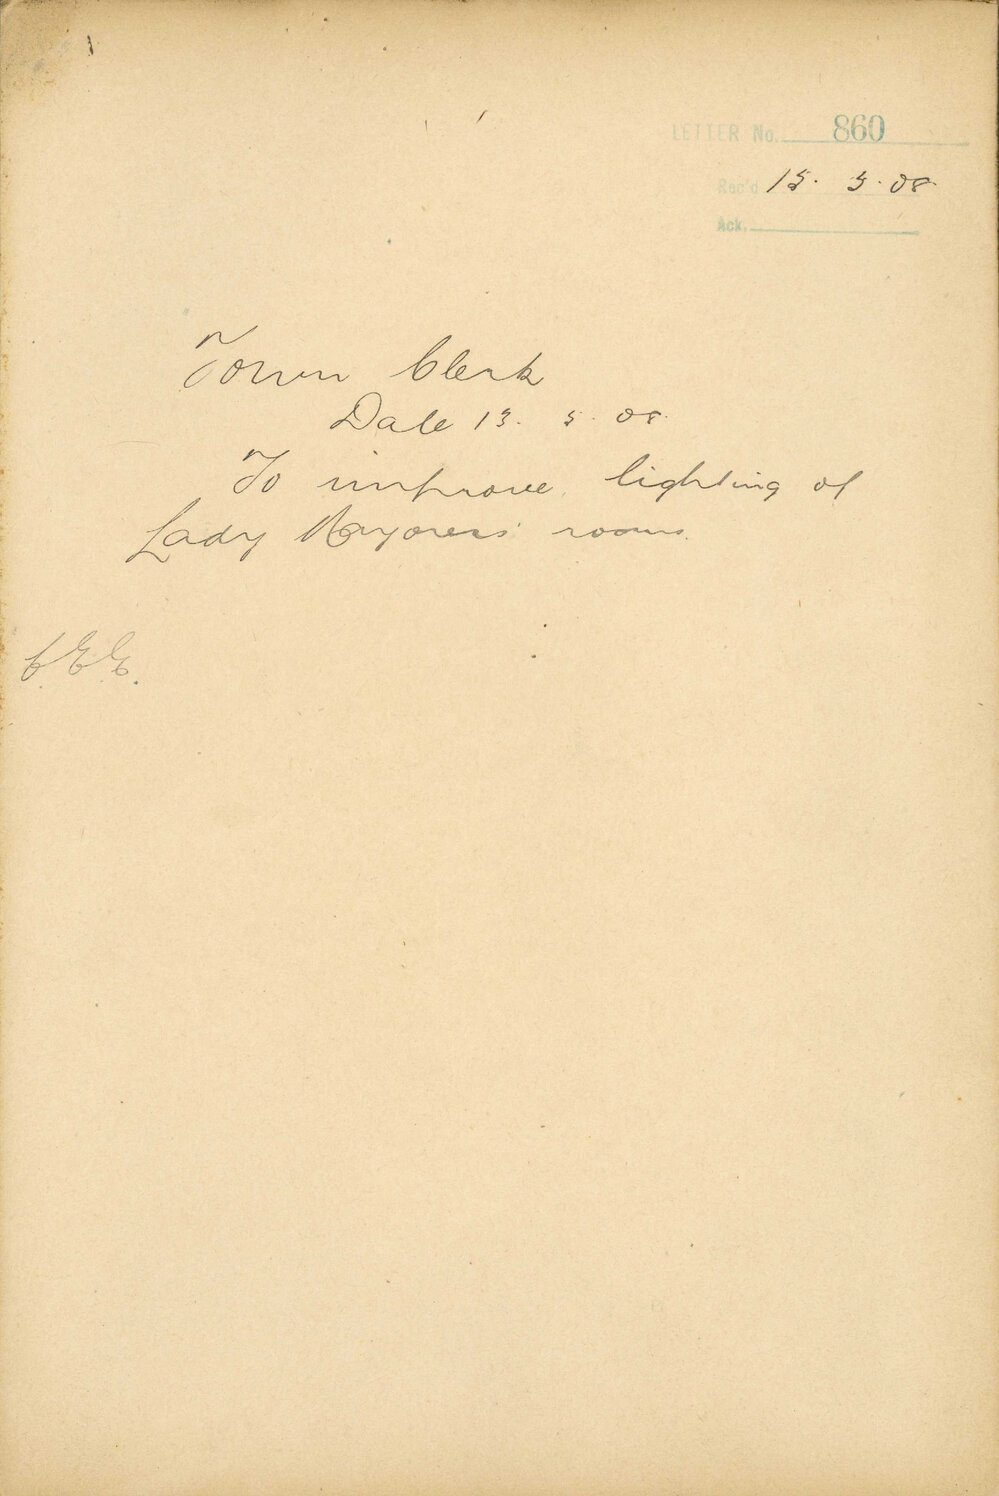 LETTER No. 860
Rec'd 15. 5. 08.
Ack.
Town Clerk
Date 13. 5. 08.
To improve lighting of
Lady Mayoress' rooms.
C.E.E.